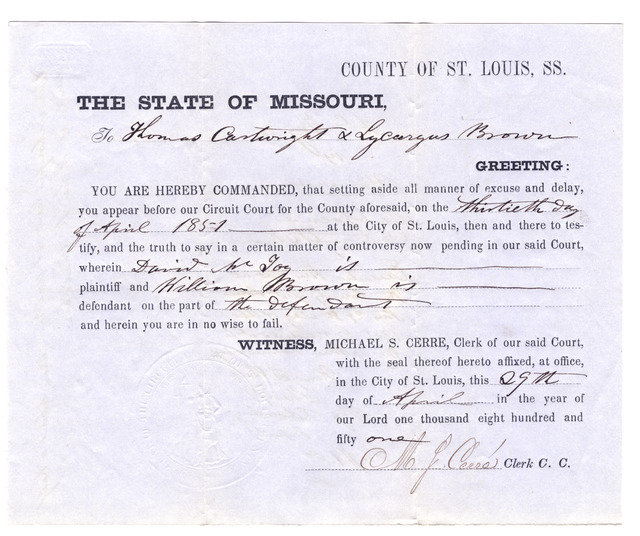 COUNTY OF ST. LOUIS, SS.
THE STATE OF MISSOURI,
To Thomas Cartwright & Lycurgus Brown
GREETING:
YOU ARE HEREBY COMMANDED, that setting aside all manner of excuse and delay,
you appear before our Circuit Court for the County aforesaid, on the thirtieth day
of April 1851 at the City of St. Louis, then and there to tes-
tify, and the truth to say in a certain matter of controversy now pending in our said Court,
wherein David is
plaintiff and William Brown is
defendant on the part of the defendant
and herein you are in no wise to fail.
WITNESS, MICHAEL S. CERRE, Clerk of our said Court,
with the seal thereof hereto affixed, at office,
in the City of St. Louis, this 29th
day of April in the year of
our Lord one thousand eight hundred and
fifty one
M. S. Cerré Clerk C. C.